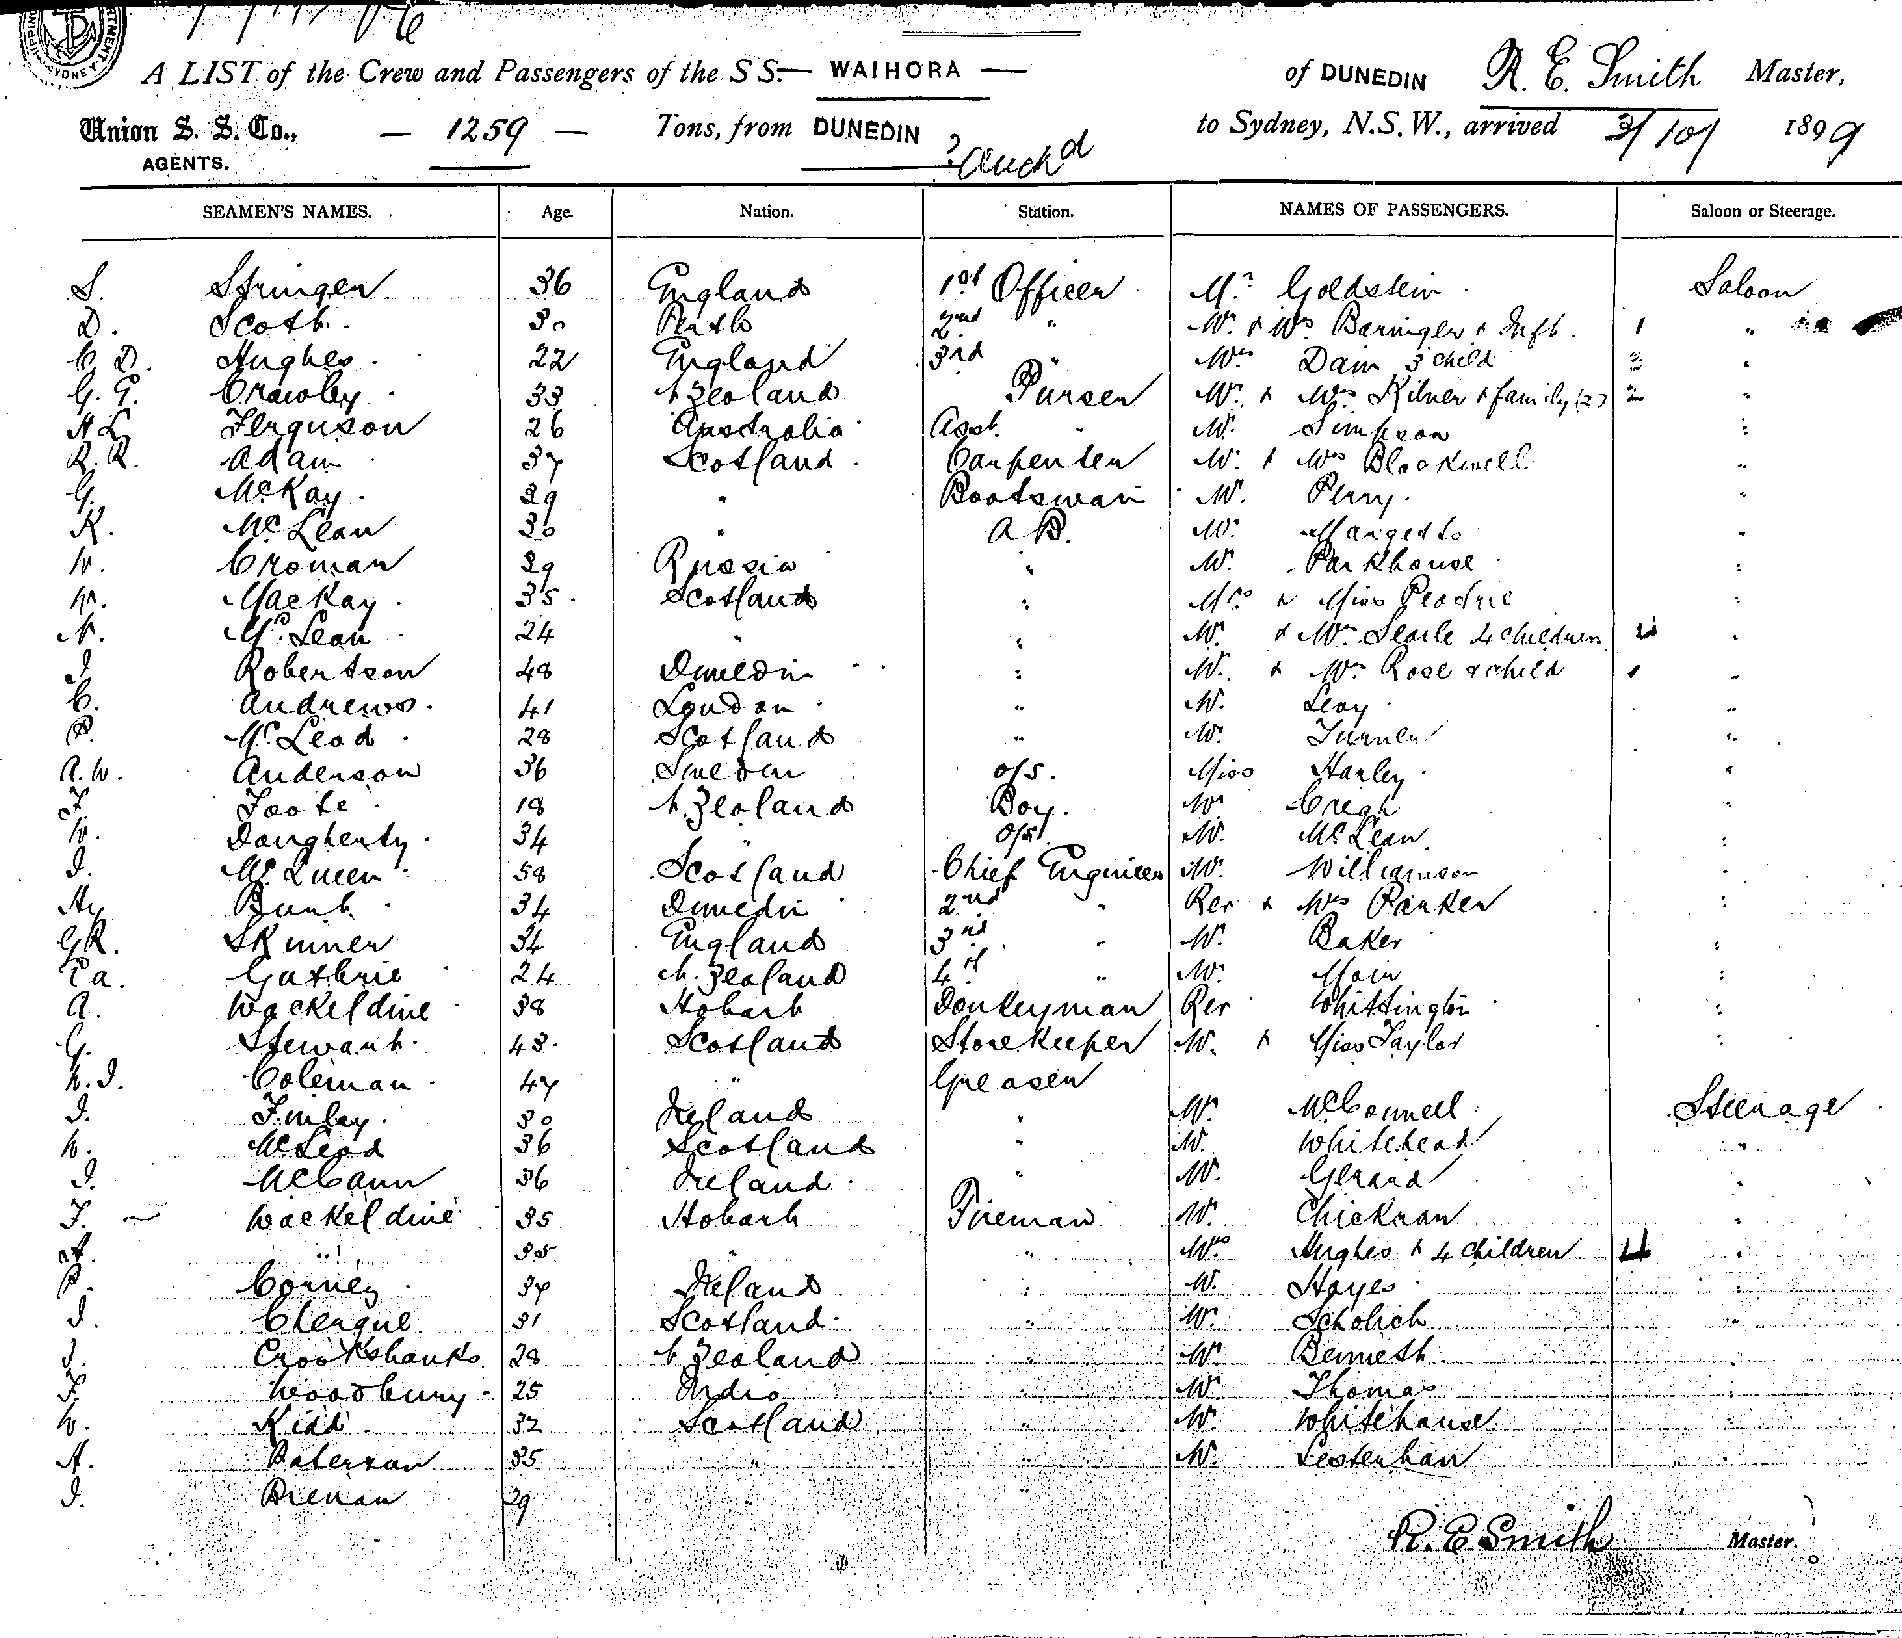 A LIST of the Crew and Passengers of the S S.— WAIHORA — of DUNEDIN R. E. Smith Master,
Union S. S. Co., — 1259 — Tons, from DUNEDIN to Sydney, N.S.W., arrived 3/10/ 1899
AGENTS. & Auckd
SEAMEN'S NAMES. Age. Nation. Station. NAMES OF PASSENGERS. Saloon or Steerage.
S. Stringer 36 England 1st Officer Mr Goldstein Saloon
D. Scott 30 Perth 2nd " Mr & Mrs Barringer & Inft. 1 "
C. D. Hughes 22 England 3rd " Mrs Dain 3 child 3 "
G. G. Crawley 33 N Zealand Purser Mr & Mrs Kilner & family (2) 2 "
H L Ferguson 26 Australia Asst. " Mr. Simpson "
R. R. Adam 37 Scotland Carpenter Mr. & Mrs Blackwell "
G. McKay 29 " Boatswain Mr. Perry "
K. McLean 30 " A B. Mr.
W. Croman 29 Russia " Mr. Parkhouse "
W. MacKay 35 Scotland " Mrs & Miss "
N. McLean 24 " " Mr. & Mrs Searle 4 children 4 "
J. Robertson 48 Dunedin " Mr. & Mrs Rose & child 1 "
C. Andrews 41 London " Mr. Levy "
McLeod 28 Scotland " Mr. Turner "
A. W. Anderson 36 Sweden O/S. Miss Harley "
F. Foote 18 N. Zealand Boy. Mr Creagh "
W. Daugherty 34 " O/S Mr. McLean "
J. McQueen 58 Scotland Chief Engineer Mr. Williamson "
Hy Bunt 34 Dunedin 2nd " Rev & Mrs Parker "
G R. Skinner 34 England 3rd " Mr. Baker "
A. Guthrie 24 N. Zealand 4th " Mr. Main "
A. Wackeldine 38 Hobart Donkeyman Rev Whittington "
G. Stewart 43 Scotland Storekeeper Mr. & Miss Taylor "
W. J. Coleman 47 " Greaser
J. Finlay 30 Ireland " Mr. McConnell Steerage
W. McLeod 36 Scotland " Mr. Whitehead "
J. McCann 36 Ireland " Mr. Gerard "
F. — Wackeldine 35 Hobart Fireman Mr. Chickran "
A. " 35 " " Mrs Hughes & 4 children 4 "
P. Corney 37 Ireland " Mr. Hayes "
J. Cleague 31 Scotland " Mr. Scholich "
J. Crookshanks 28 N Zealand " Mr. Bennett "
F. Woodbury 25 India " Mr Thomas "
W. Kidd 32 Scotland " Mr Whitehouse "
A. Paterson 35 " " Mr.
J. Brenan 29 "
R. E. Smith Master.